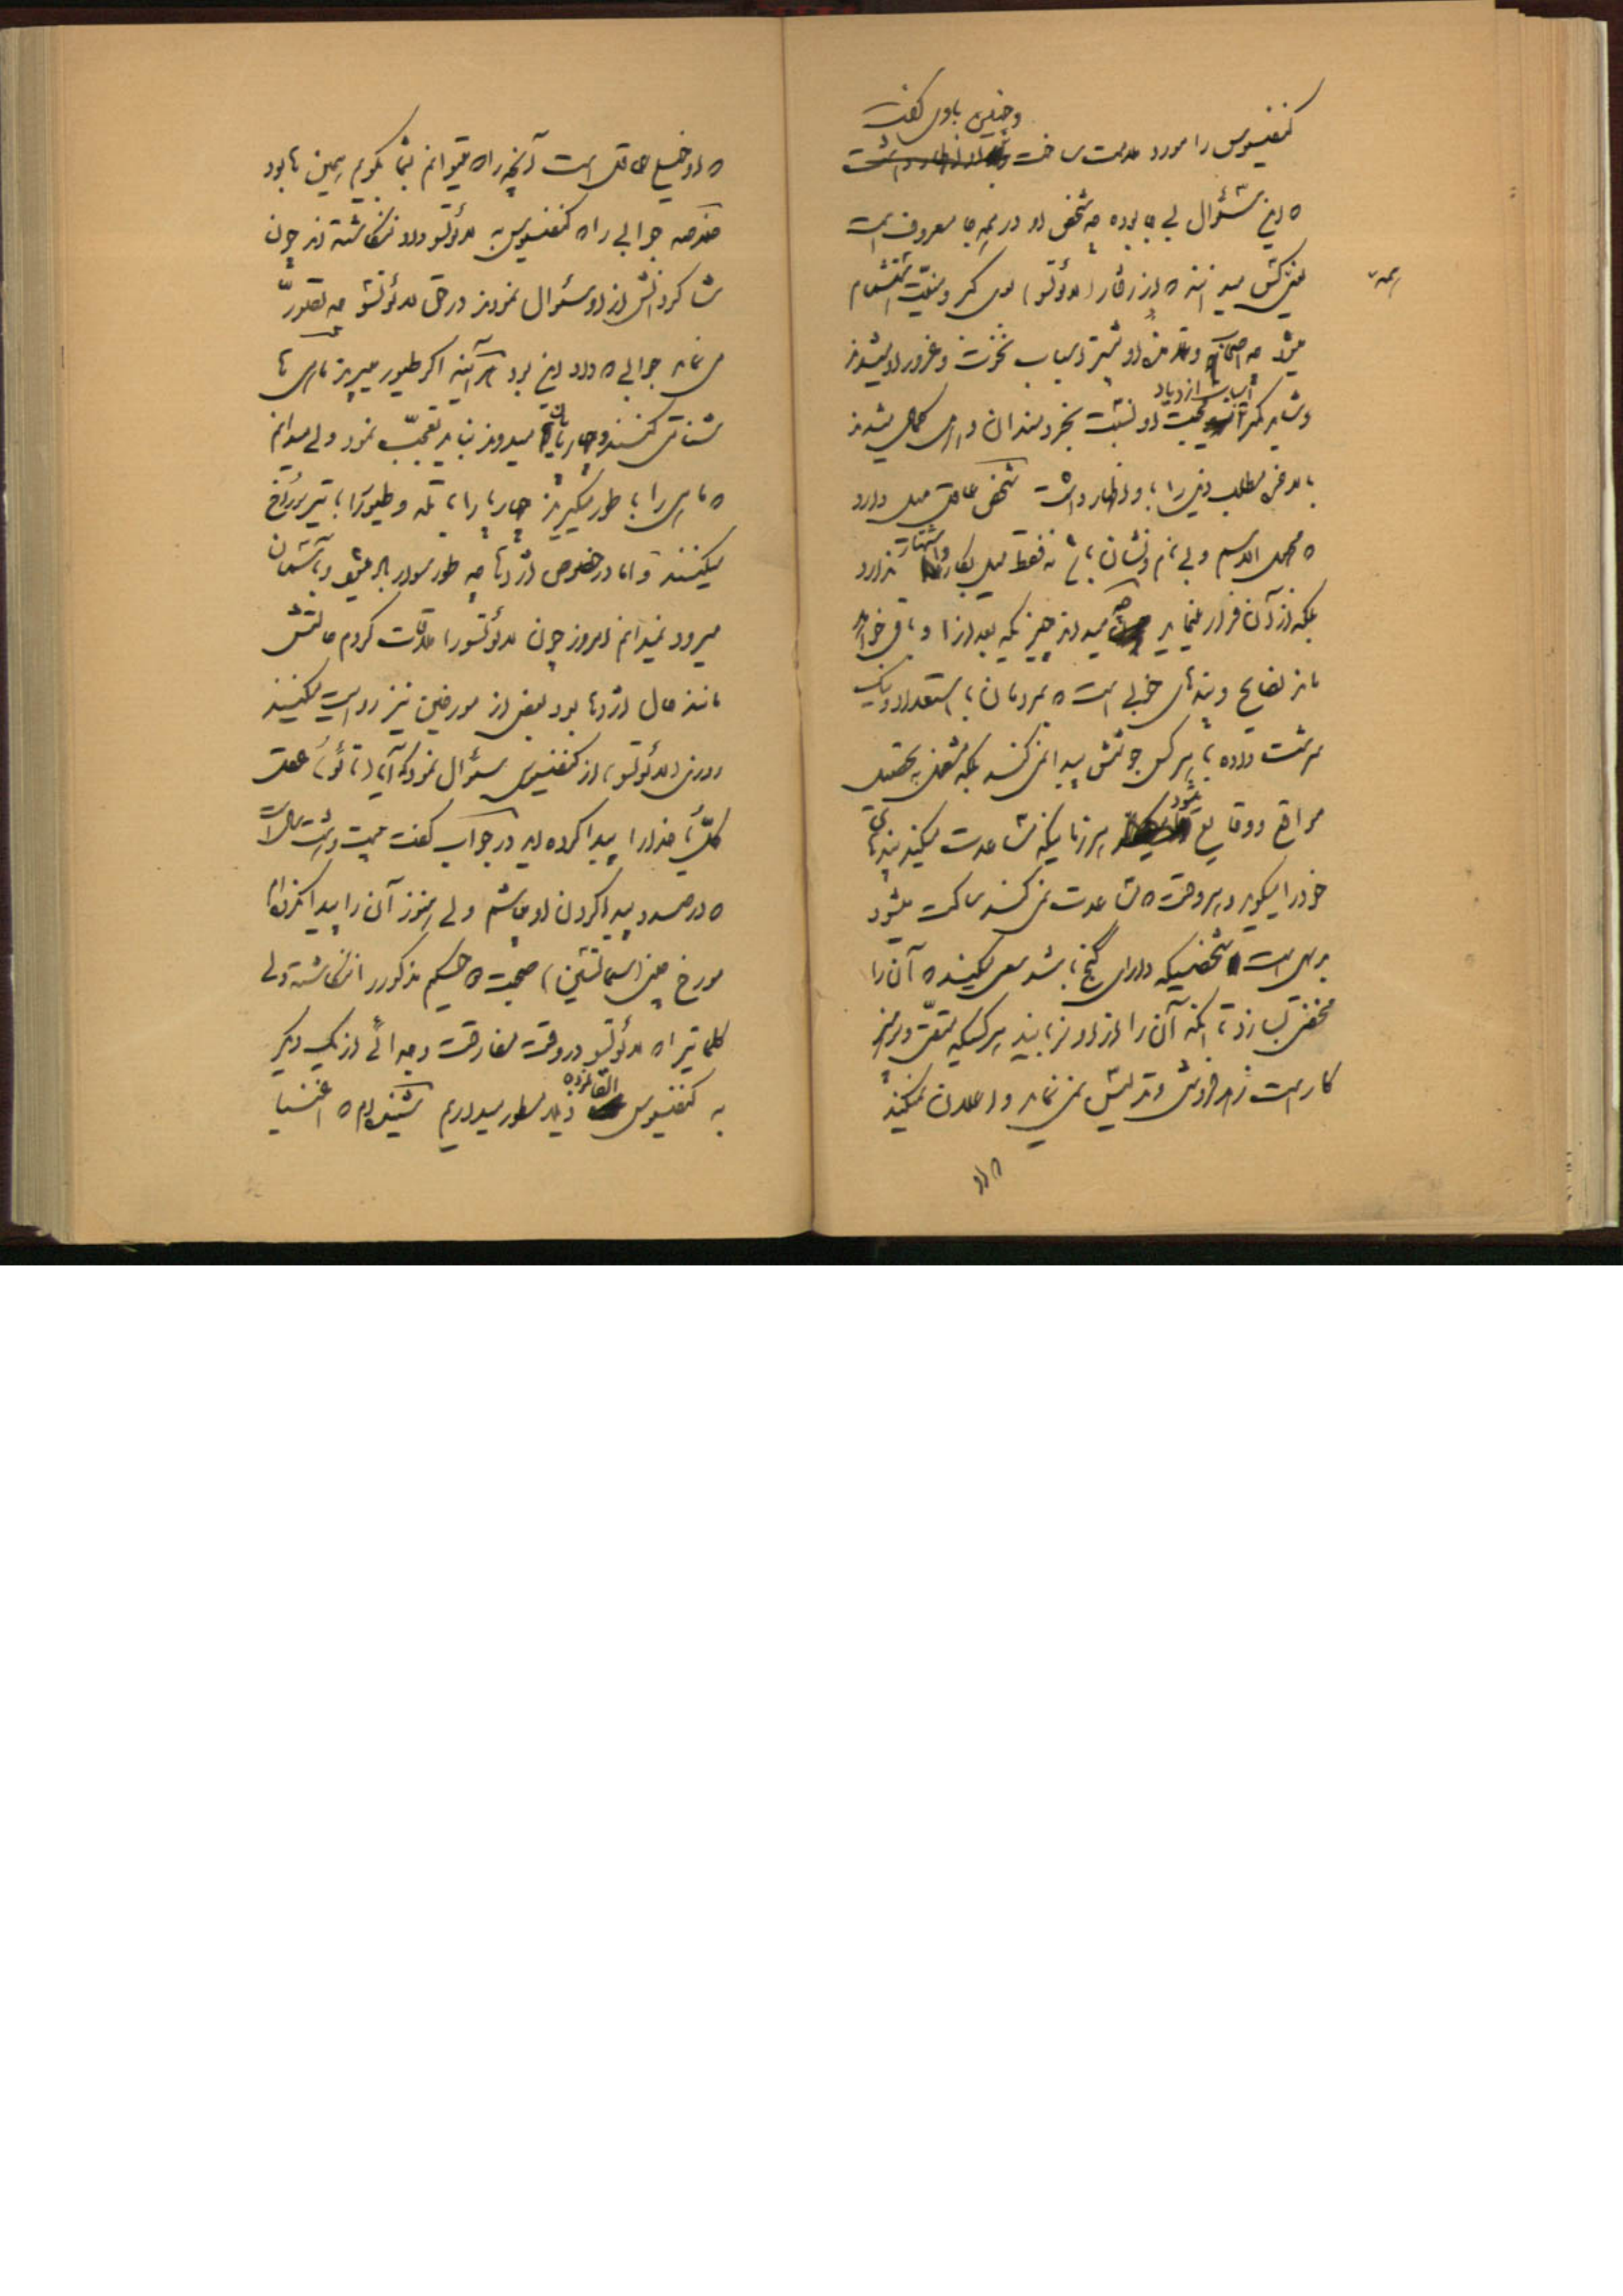 وچنین باوی گفت
کنفسیوس را مورد ملامت ساخت
که این سئوال بی جا بوده چه شخص او در همه جا معروف است
همه
میداند که از رفتار (لائوتسو) بوی کبر و منیت استشمام
میشد چه و بیشتر اسباب نخوت و غرور او میشوند
اسباب ازدیاد
و شاید محبت او نسبت بخردمندان و اهل کمال میشدند
بالاخره مطلب دیگر را و اظهار داشت شخص عاقل میل دارد
که مجهول الاسم و بی نام و نشان باشد نه فقط میل بکار ندارد
واشتهار
بلکه از آن فرار مینماید چه میداند چیزیکه بعد از او باقی خواهد
ماند نصایح و پندهای خوبی است که بمردمان با استعداد و نیک
سرشت داده با هر کس جوشش پیدا نمی کند بلکه مشغول به تحصیل
مواقع و وقایع میشود هر زمانیکه مساعدت میکند پندهای
خود را میگوید و هر وقت که مساعدت نمی کند ساکت میشود
بدیهی است شخصیکه دارای گنج باشد سعی میکند که آن را
مخفی بسازد تا اینکه آن را از او نربایند هرکسیکه متقی و پرهیز
کار است زهد فروشی و تدلیس نمی نماید و اعلان نمیکند
که او خیلی عاقل است آنچه را که میتوانم بشما بگویم همین ها بود
خلاصه جوابی را که کنفسیوس به لائوتسو داد ننگاشته اند چون
شاگردانش از او سئوال نمودند در حق لائوتسو چه تصور
می نماید جوابی که داد این بود هر آینه اگر طیور میپرند ماهی ها
شناوری میکنند و چارپایان میدوند نباید تعجب نمود ولی میدانم
که ماهی را با طور میگیرند چارپا را با تله و طیور را با تیر سوراخ
میکنند و اما در خصوص اژدها چه طور سوار باد میشود و بآسمان
میرود نمیدانم امروز چون لائوتسو را ملاقات کردم حالتش
مانند حال اژدها بود بعضی از مورخین نیز روایت میکنند
روزی (لائوتسو) از کنفسیوس سئوال نمود که آیا (تائو) عقل
کل یا خدا را پیدا کرده اید در جواب گفت بیست و هشت سال است
که در صدد پیدا کردن او میباشم ولی هنوز آن را پیدا نکرده ام
مورخ چینی (سماتسین) صحبت که حکیم مذکور را ننگاشته ولی
کلماتی را که لائوتسو در وقت مفارقت و جدائی از یک دیگر
به کنفسیوس القا نموده ذیلا مسطور میداریم شنیده ام که اغنیا